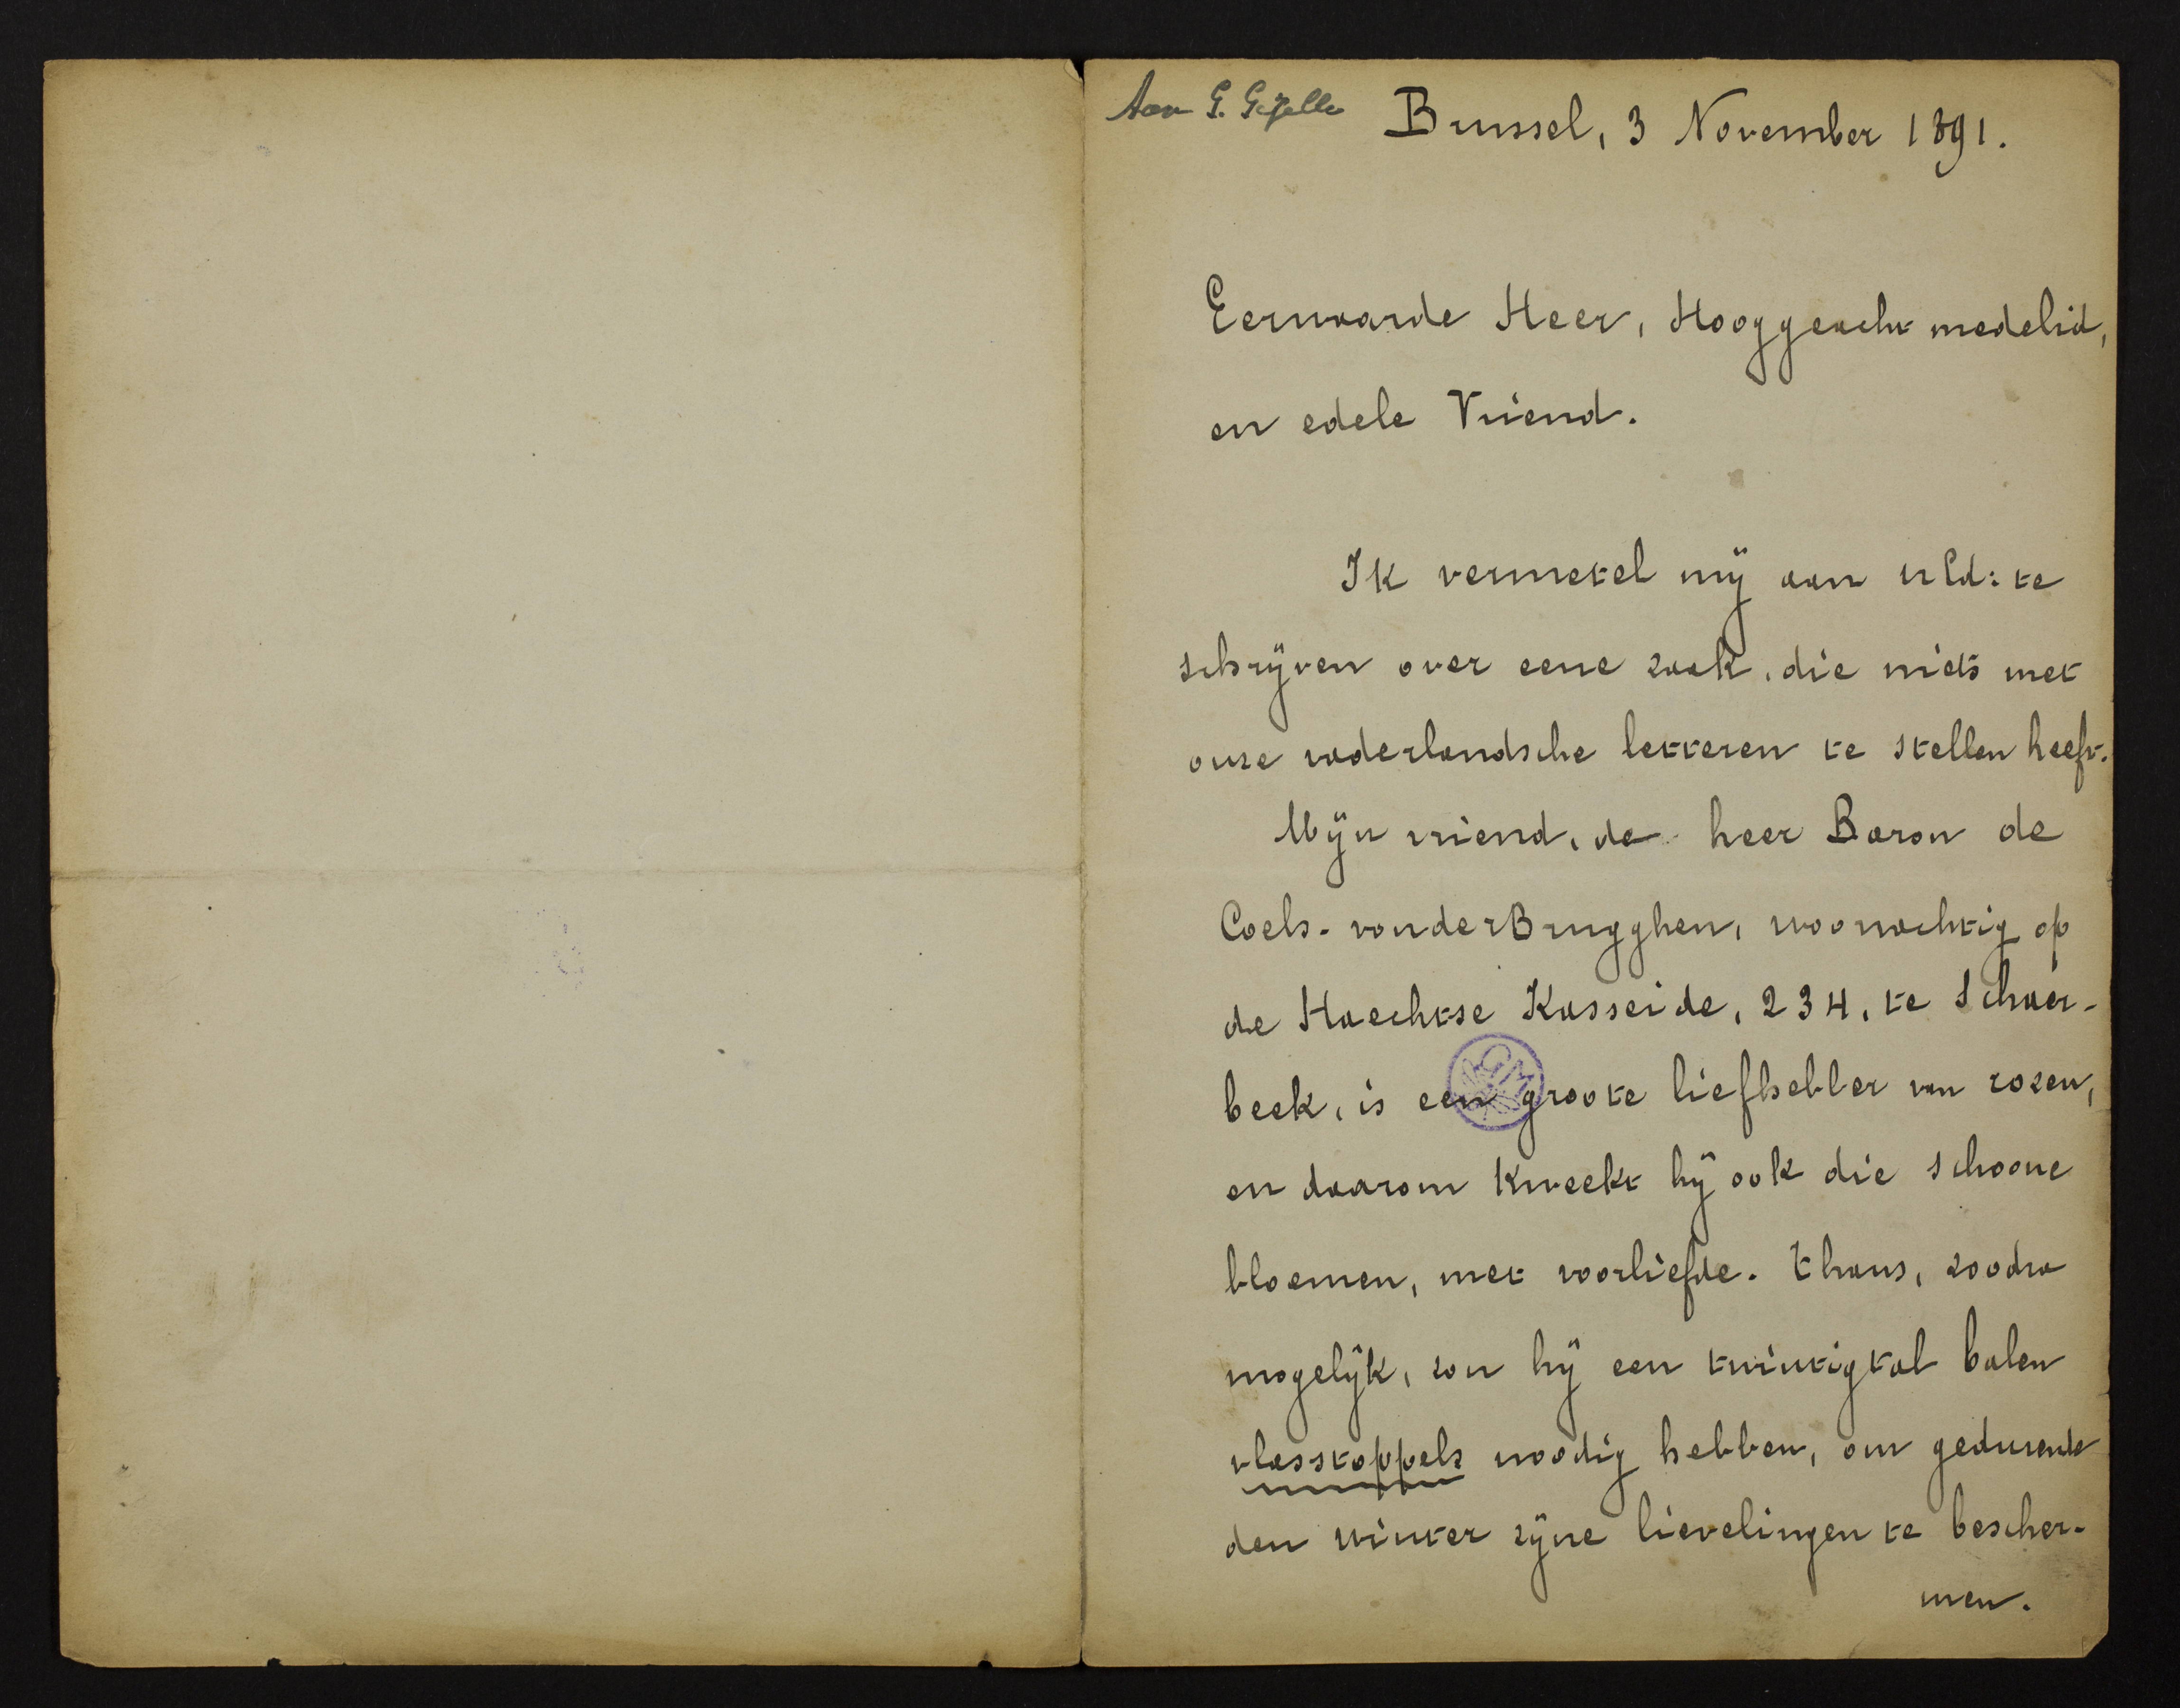 Aan G. Gezelle
Brussel, 3 November 1891.
Eerwaarde Heer, Hooggeacht medelid,
en edele Vriend.
Ik vermetel mij aan UEd: te
schrijven over eene zaak, die niets met
onze vaderlandsche letteren te stellen heeft.
Mijn vriend, de heer Baron de
Coels-vanderBrugghen, woonachtig op
de Haechtse Kasseide, 234, te Schaer-
beek, is een groote liefhebber van rozen,
en daarom kweekt hij ook die schoone
bloemen, met voorliefde. Thans, zoodra
mogelijk, zou hij een twintigtal balen
vlasstoppels noodig hebben, om gedurende
den winter zijne lievelingen te bescher-
men.